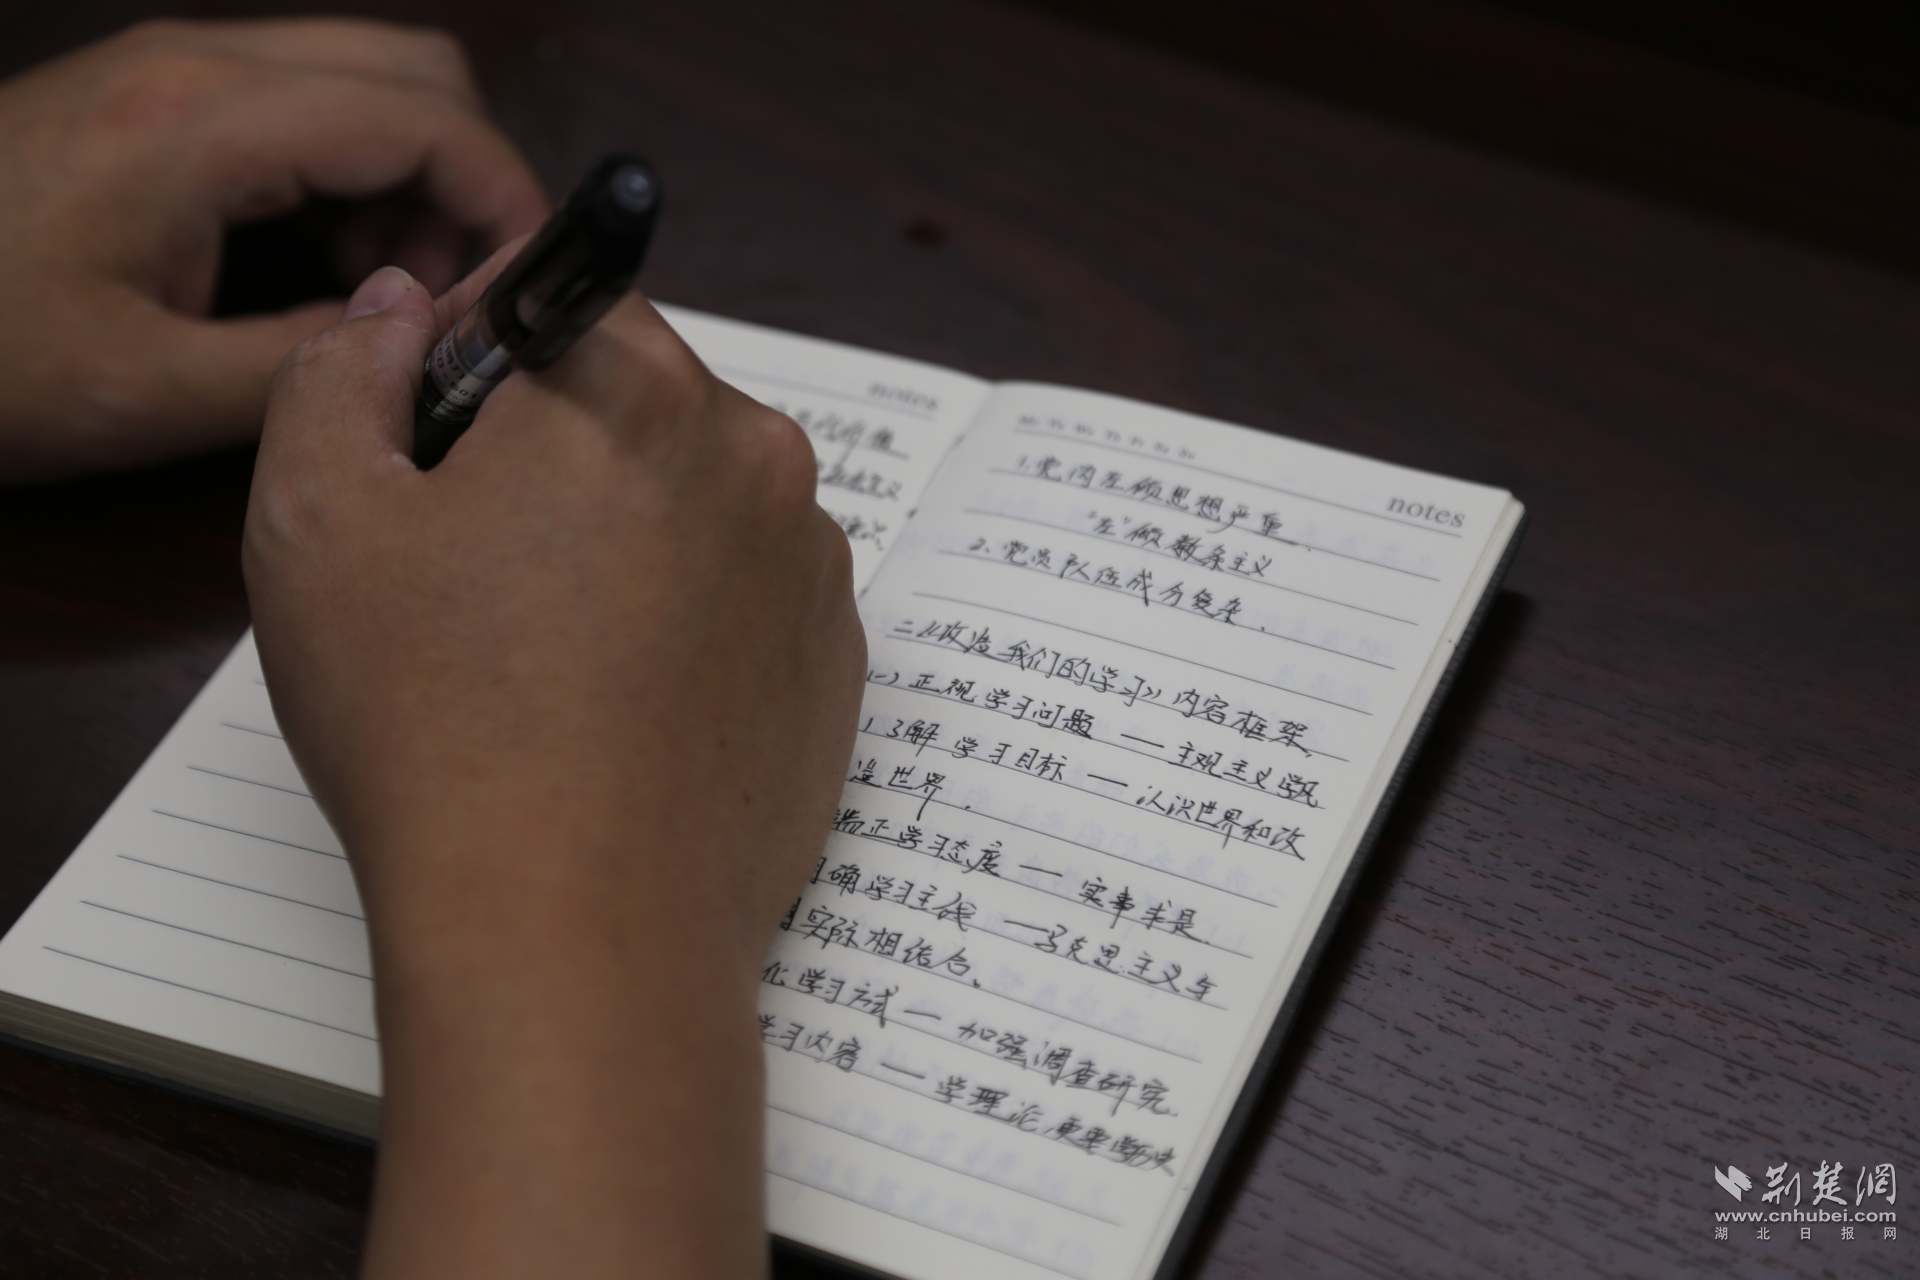 notes
Mo Tu We Th Fr Sa Su
notes
1.党内左倾思想严重.
"左"倾教条主义
2、党员队伍成分复杂.
二《改造我们的学习》内容框架,
(一)正视学习问题 — 主观主义学风
了解学习目标 — 认识世界和改
造世界.
端正学习态度 — 实事求是.
明确学习主线 — 马克思主义与
实际相结合。
化学习方式 — 加强调查研究.
学习内容 — 学理论,更要学历史
荆楚网
www.cnhubei.com
湖北日报网